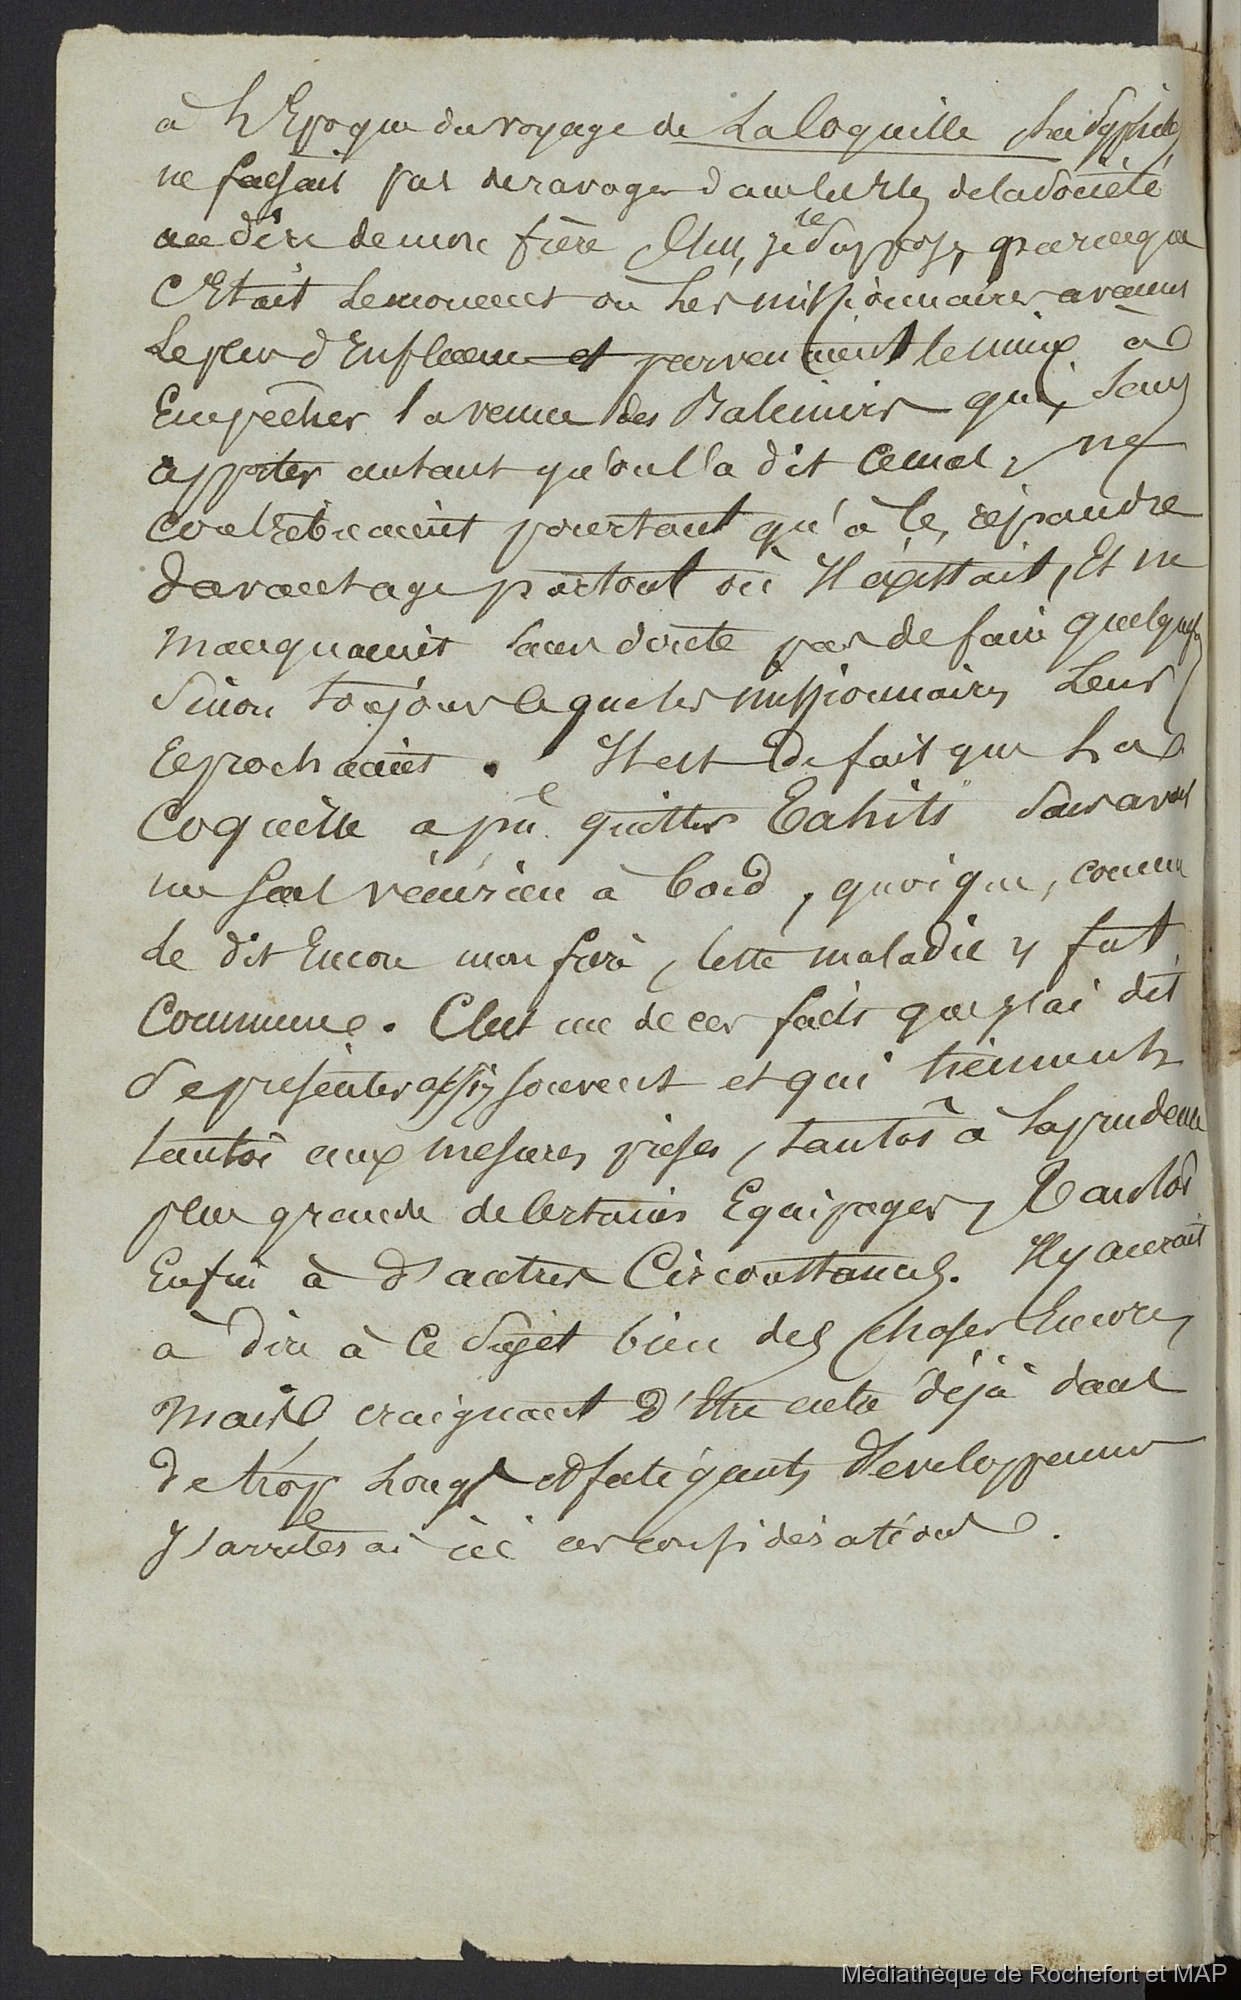 à L'Epoque du voyage de La Coquille, la Syphilis
ne faisait pas de ravages dans les Iles de la Société
au dire de mon frère. C'est, je le suppose, parceque
C'Etait le moment où Les missionnaires avaient
Le plus d'Influence et parvenaient le mieux à
Empêcher la venue des Baleiniers qui, sans
apporter autant qu'on l'a dit ce mal, ne
contribuaient pourtant qu'à le répandre
davantage partout où Il existait, Et ne
manquaient sans doute pas de faire quelquefois
Sinon toujours ce que les missionnaires Leur
Reprochaient. Il est de fait que La
Coquille a pu quitter Tahiti sans avoir
un seul vénérien à bord, quoique, comme
Le dit Encore mon frère, cette maladie y fut
Commune. C'est un de ces faits que j'ai dit
se présenter assez souvent et qui tiennent
tantôt aux mesures prises, tantôt à la prudence
plus grande de Certains Equipages, Tantôt
Enfin à d'autres Circonstances. Il y aurait
à dire à ce sujet bien des choses Encore,
mais craignant d'Etre entré déjà dans
de trop Longs et fatigants développements
J'arrêterai ici ces considérations.
Médiathèque de Rochefort et MAP